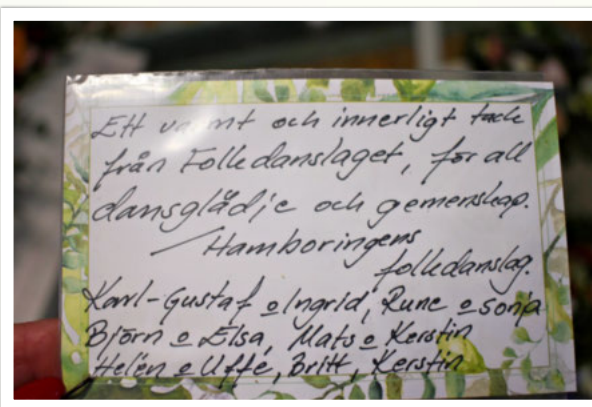 Ett varmt och innerligt tack
från Folkdanslaget, för all
dansglädje och gemenskap.
Hamboringens
folkdanslag.
Karl-Gustaf o Ingrid, Rune o Sonja
Björn o Elsa, Mats o Kerstin
Helén o Uffe, Britt, Kerstin